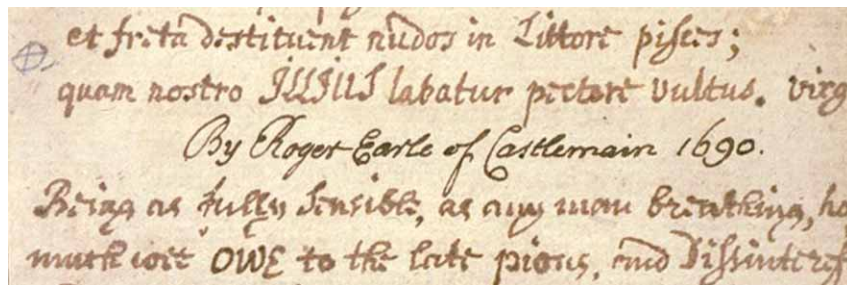 et freta destituent nudos in Littore pisces;
quam nostro ILLIUS labatur pectore vultus. Virg
By Roger Earle of Castlemain 1690.
Being as fully sensible, as any man breathing, ho
much wee OWE to the late pious, and Dissinteres